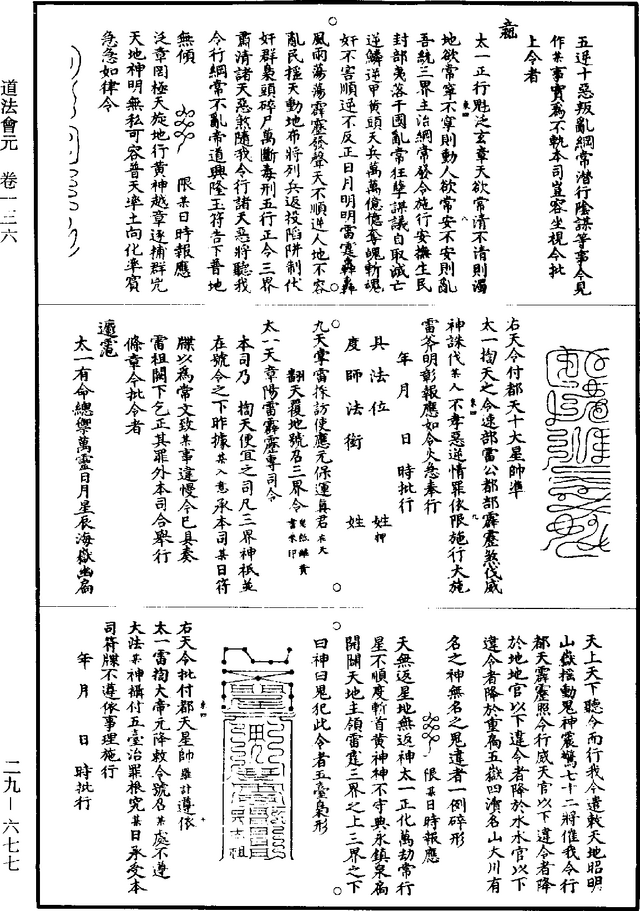 道法會元　卷一三六
二九－六七七
五逆十惡叛亂綱常潛行陰謀等事今見
作某事實爲不軌本司豈容坐視今批
上令者
太一正行魁泛玄章天欲常清不清則濁
地欲常寧不寧則動人欲常安不安則亂
吾統三界主治綱常發令施行安撫生民
封部夷落干國亂常狂孽謀議自取滅亡
逆鱗逆甲黃頭天兵萬萬億億奪魄斬魂
奸不害順逆不反正日月明明雷霆轟轟
風雨蕩蕩霹靂發聲天不順逆人地不容
亂民摇天動地布將列兵返投陷阱制伏
奸群梟頭碎尸萬斷毒刑五行正令三界
肅清諸天惡煞隨我令行諸天惡將聽我
令行綱常不亂帝道興隆玉符告下普地
無傾　　限某日時報應
泛章罡極天旋地行黃神越章逐捕群兇
天地神明無私可容普天率土向化率賓
急急如律令
右天令付都天十大星帥準
太一掏天之令速部雷公都部霹靂煞伐威
神誅伐某人不孝惡逆情罪依限施行大施
雷斧明彰報應如令火急奉行
年　月　日　時批行
具法位　姓押
度師法銜　姓
九天掌雷採訪使應元保運真君
翻天覆地號召三界令
太八天章陽雷霹靂專司令
本司乃　掏天便宜之司凡三界神祇並
在號令之下昨據某入意承本司某日符
牒以爲常文致某事違慢今已具奏
雷祖闕下乞正其罪外本司合舉行
條章令批令者
太一有命總禦萬靈日月星辰海嶽幽扃
天上天下聽令而行我今遣敕天地昭明
山嶽摇動鬼神震驚七十二將催我令行
都天霹靂照令行威天官以下違令者降
於地地官以下違令者降於水水官以下
違令者降於重扃五嶽四瀆名山大川有
名之神無名之鬼違者一例碎形
限某日時報應
天無返星地無返神太一正化萬劫常行
星不順度斬首黃神神不守典永鎮泉扃
開闢天地主領雷霆三界之上三界之下
曰神曰鬼犯此令者五臺梟形
右天令批付都天星帥　遵依
太一雷掏大帝元降敕令號召某處不遵
大法某神攝付五臺治罪根究某日承受本
司符牒不遵依事理施行
年　月　日　時批行